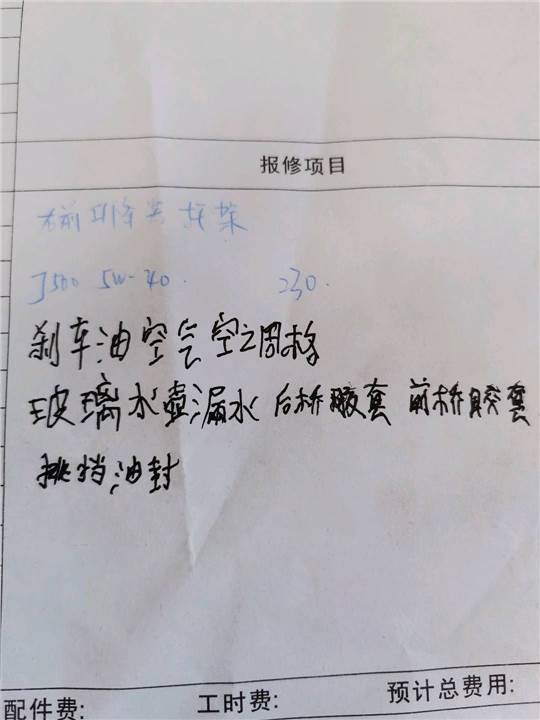 报修项目
右前 支架
J500 5W-40. 230.
刹车油 空气 空调格
玻璃水壶漏水 后桥胶套 前桥胶套
挑挡油封
配件费: 工时费: 预计总费用: